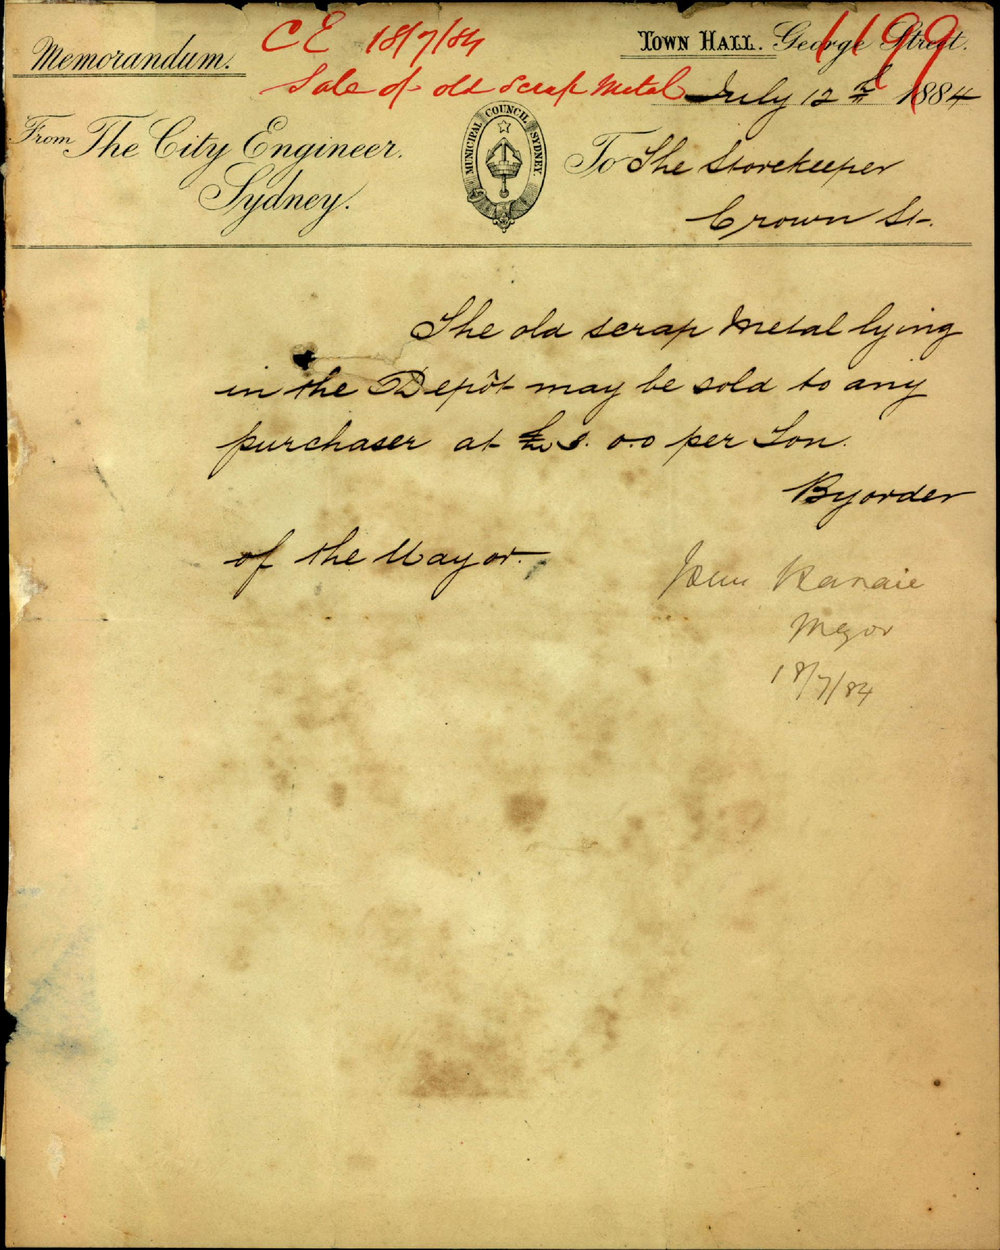 CE 18/7/84
1199
Memorandum.
TOWN HALL. George Street.
Sale of old scrap metal
July 12th 1884
From The City Engineer.
Sydney.
MUNICIPAL COUNCIL SYDNEY.
To The Storekeeper
Crown St.
The old scrap Metal lying
in the Depôt may be sold to any
purchaser at £ 0.0 per Ton.
By order
of the Mayor.
John
Mayor
18/7/84